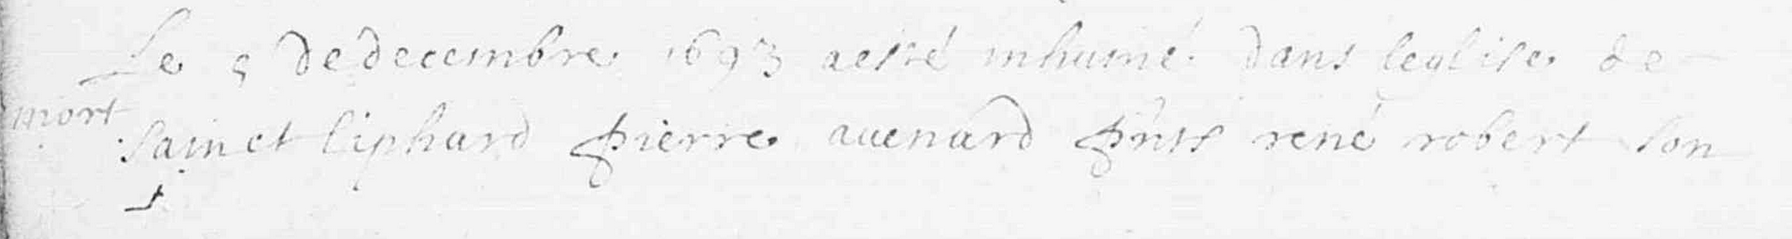 Le 5 de decembre 1693 a esté inhumé dans leglise de
mort
sainct liphard pierre auenard pñts rené robert son